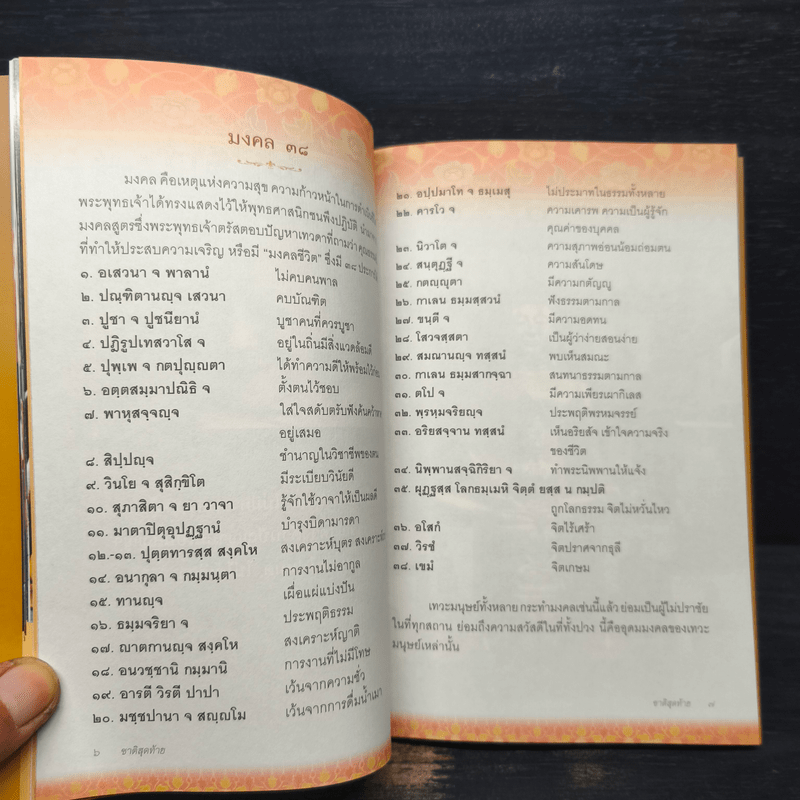 มงคล ๓๘
มงคล คือเหตุแห่งความสุข ความก้าวหน้าในการดำเนินชีวิต
พระพุทธเจ้าได้ทรงแสดงไว้ให้พุทธศาสนิกชนพึงปฏิบัติ
มงคลสูตรซึ่งพระพุทธเจ้าตรัสตอบปัญหาเทวดาที่ถามว่า
ที่ทำให้ประสบความเจริญ หรือมี "มงคลชีวิต" ซึ่งมี ๓๘
๑. อเสวนา จ พาลานํ ไม่คบคนพาล
๒. ปณฺฑิตานญฺจ เสวนา คบบัณฑิต
๓. ปูชา จ ปูชนียานํ บูชาคนที่ควรบูชา
๔. ปฏิรูปเทสวาโส จ อยู่ในถิ่นมีสิ่งแวดล้อมดี
๕. ปุพฺเพ จ กตปุญฺญตา ได้ทำความดีให้พร้อมไว้
๖. อตฺตสมฺมาปณิธิ จ ตั้งตนไว้ชอบ
๗. พาหุสจฺจญฺจ ใส่ใจสดับตรับฟังค้นคว้า
อยู่เสมอ
๘. สิปฺปญฺจ ชำนาญในวิชาชีพของตน
๙. วินโย จ สุสิกฺขิโต มีระเบียบวินัยดี
๑๐. สุภาสิตา จ ยา วาจา รู้จักใช้วาจาให้เป็นผลดี
๑๑. มาตาปิตุอุปฏฺฐานํ บำรุงบิดามารดา
๑๒.-๑๓. ปุตฺตทารสฺส สงฺคโห สงเคราะห์บุตร สงเคราะห์
๑๔. อนากุลา จ กมฺมนฺตา การงานไม่อากูล
๑๕. ทานญฺจ เผื่อแผ่แบ่งปัน
๑๖. ธมฺมจริยา จ ประพฤติธรรม
๑๗. ญาตกานญฺจ สงฺคโห สงเคราะห์ญาติ
๑๘. อนวชฺชานิ กมฺมานิ การงานที่ไม่มีโทษ
๑๙. อารตี วิรตี ปาปา เว้นจากความชั่ว
๒๐. มชฺชปานา จ สญฺญโม เว้นจากการดื่มน้ำเมา
๖ ชาติสุดท้าย
๒๑. อปฺปมาโท จ ธมฺเมสุ ไม่ประมาทในธรรมทั้งหลาย
๒๒. คารโว จ ความเคารพ ความเป็นผู้รู้จัก
คุณค่าของบุคคล
๒๓. นิวาโต จ ความสุภาพอ่อนน้อมถ่อมตน
๒๔. สนฺตุฏฺฐี จ ความสันโดษ
๒๕. กตญฺญุตา มีความกตัญญู
๒๖. กาเลน ธมฺมสฺสวนํ ฟังธรรมตามกาล
๒๗. ขนฺตี จ มีความอดทน
๒๘. โสวจสฺสตา เป็นผู้ว่าง่ายสอนง่าย
๒๙. สมณานญฺจ ทสฺสนํ พบเห็นสมณะ
๓๐. กาเลน ธมฺมสากจฺฉา สนทนาธรรมตามกาล
๓๑. ตโป จ มีความเพียรเผากิเลส
๓๒. พฺรหฺมจริยญฺจ ประพฤติพรหมจรรย์
๓๓. อริยสจฺจาน ทสฺสนํ เห็นอริยสัจ เข้าใจความจริง
ของชีวิต
๓๔. นิพฺพานสจฺฉิกิริยา จ ทำพระนิพพานให้แจ้ง
๓๕. ผุฏฺฐสฺส โลกธมฺเมหิ จิตฺตํ ยสฺส น กมฺปติ
ถูกโลกธรรม จิตไม่หวั่นไหว
๓๖. อโสกํ จิตไร้เศร้า
๓๗. วิรชํ จิตปราศจากธุลี
๓๘. เขมํ จิตเกษม
เทวะมนุษย์ทั้งหลาย กระทำมงคลเช่นนี้แล้ว ย่อมเป็นผู้ไม่ปราชัย
ในที่ทุกสถาน ย่อมถึงความสวัสดีในที่ทั้งปวง นี้คืออุดมมงคลของเทวะ
มนุษย์เหล่านั้น
ชาติสุดท้าย ๗